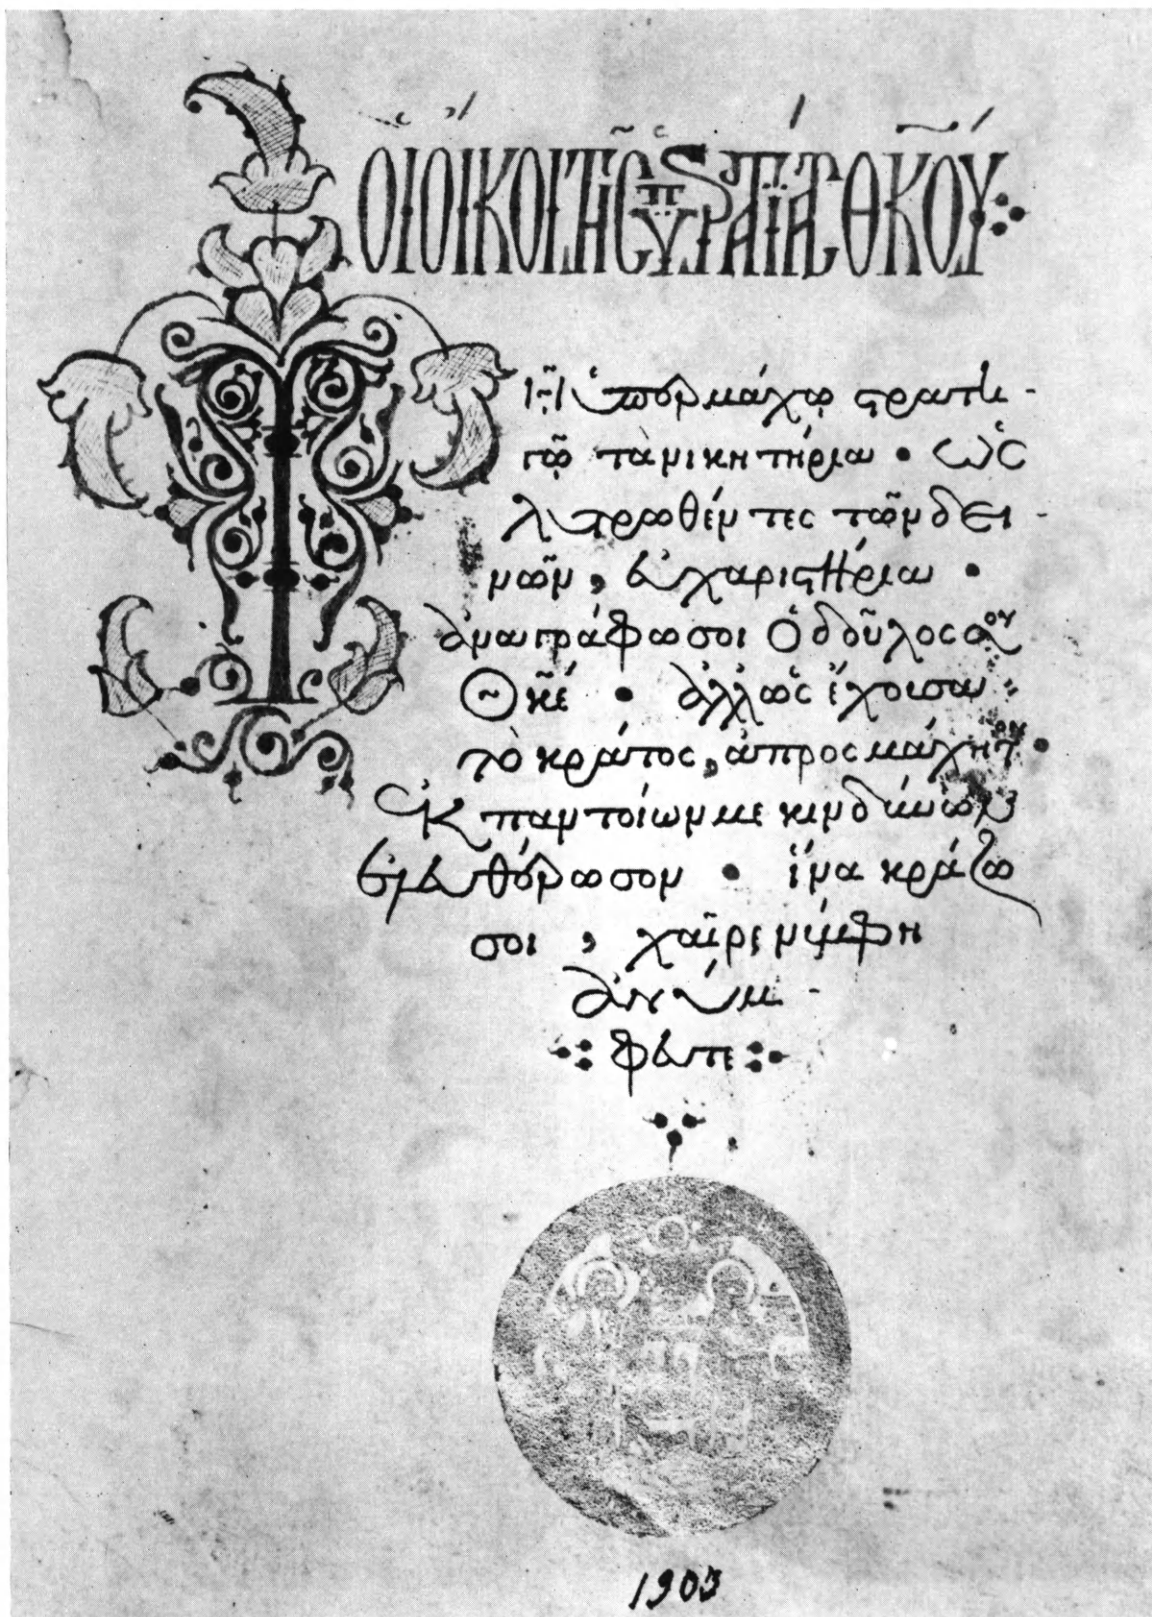 ΟΙ ΟΙΚΟΙ ΤῆC ὙΠΡΑΓΊΑC ΘΚΟΥ
Τῆ ὑπερμάχω στρατη-
γῶ τὰ νικητήρια · ὡς
λυτρωθέντες τῶν δει-
νῶν, εὐχαριστήρια ·
ἀναγράφω σοι ὁ δοῦλος σου
Θκέ · ἀλλ' ὡς ἔχουσα
τὸ κράτος, ἀπροσμάχητον ·
ἐκ παντοίων με κινδύνων
ἐλευθέρωσον · ἵνα κράζω
σοι, χαῖρε νύμφη
ἀνύμ-
φευτε
1903